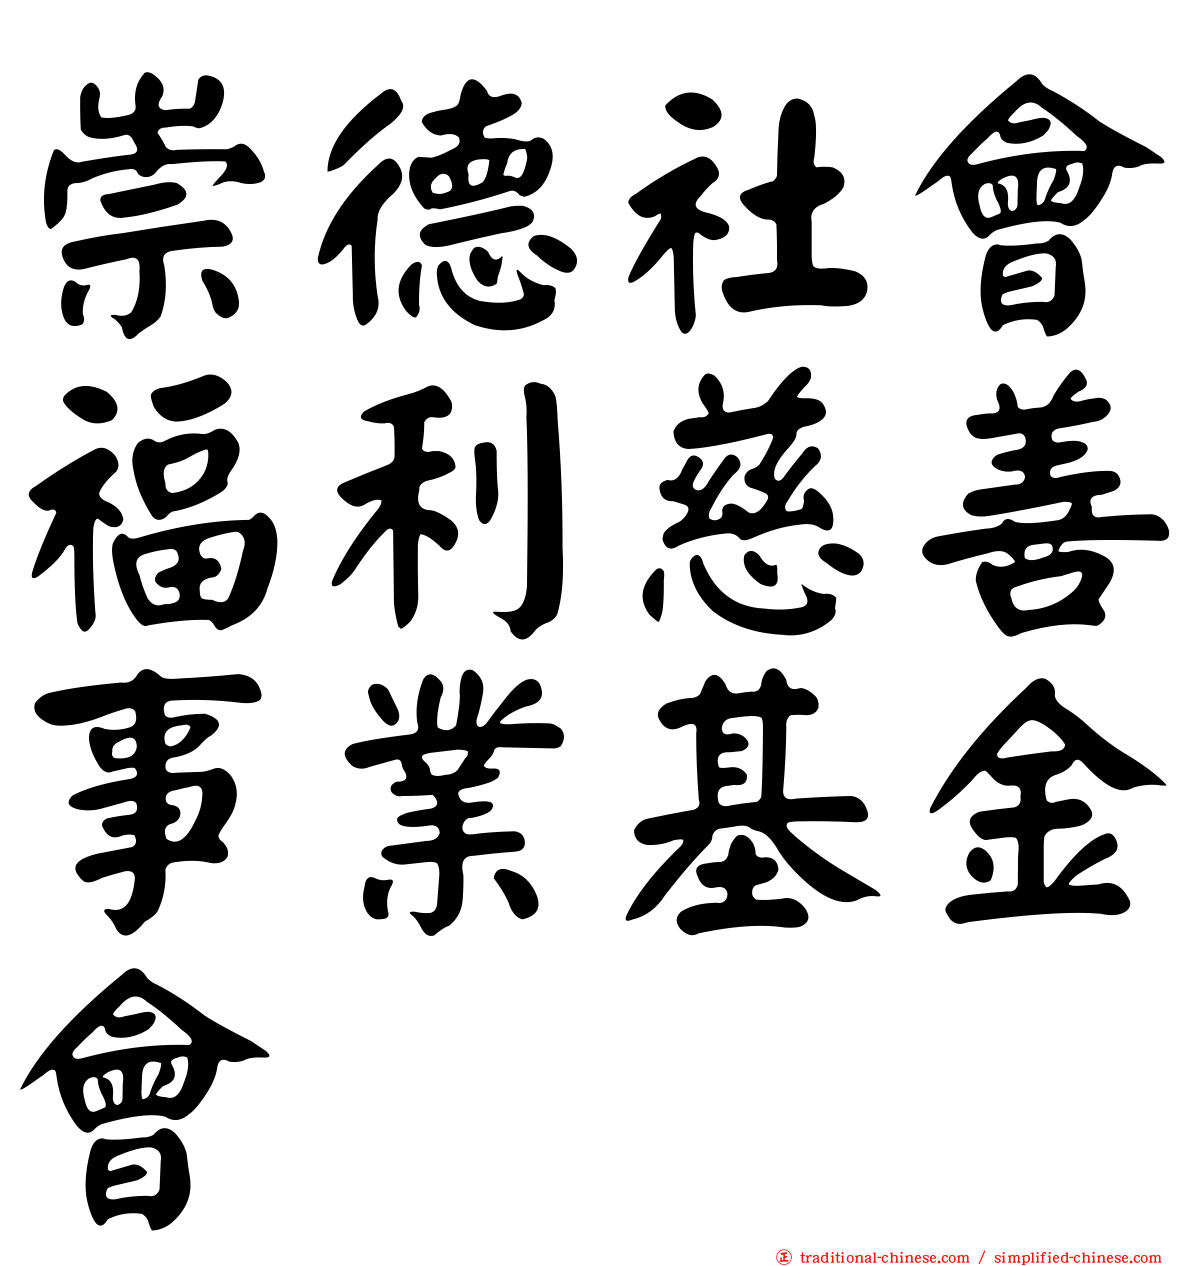 崇德社會
福利慈善
事業基金
會
㊣ traditional-chinese.com / simplified-chinese.com